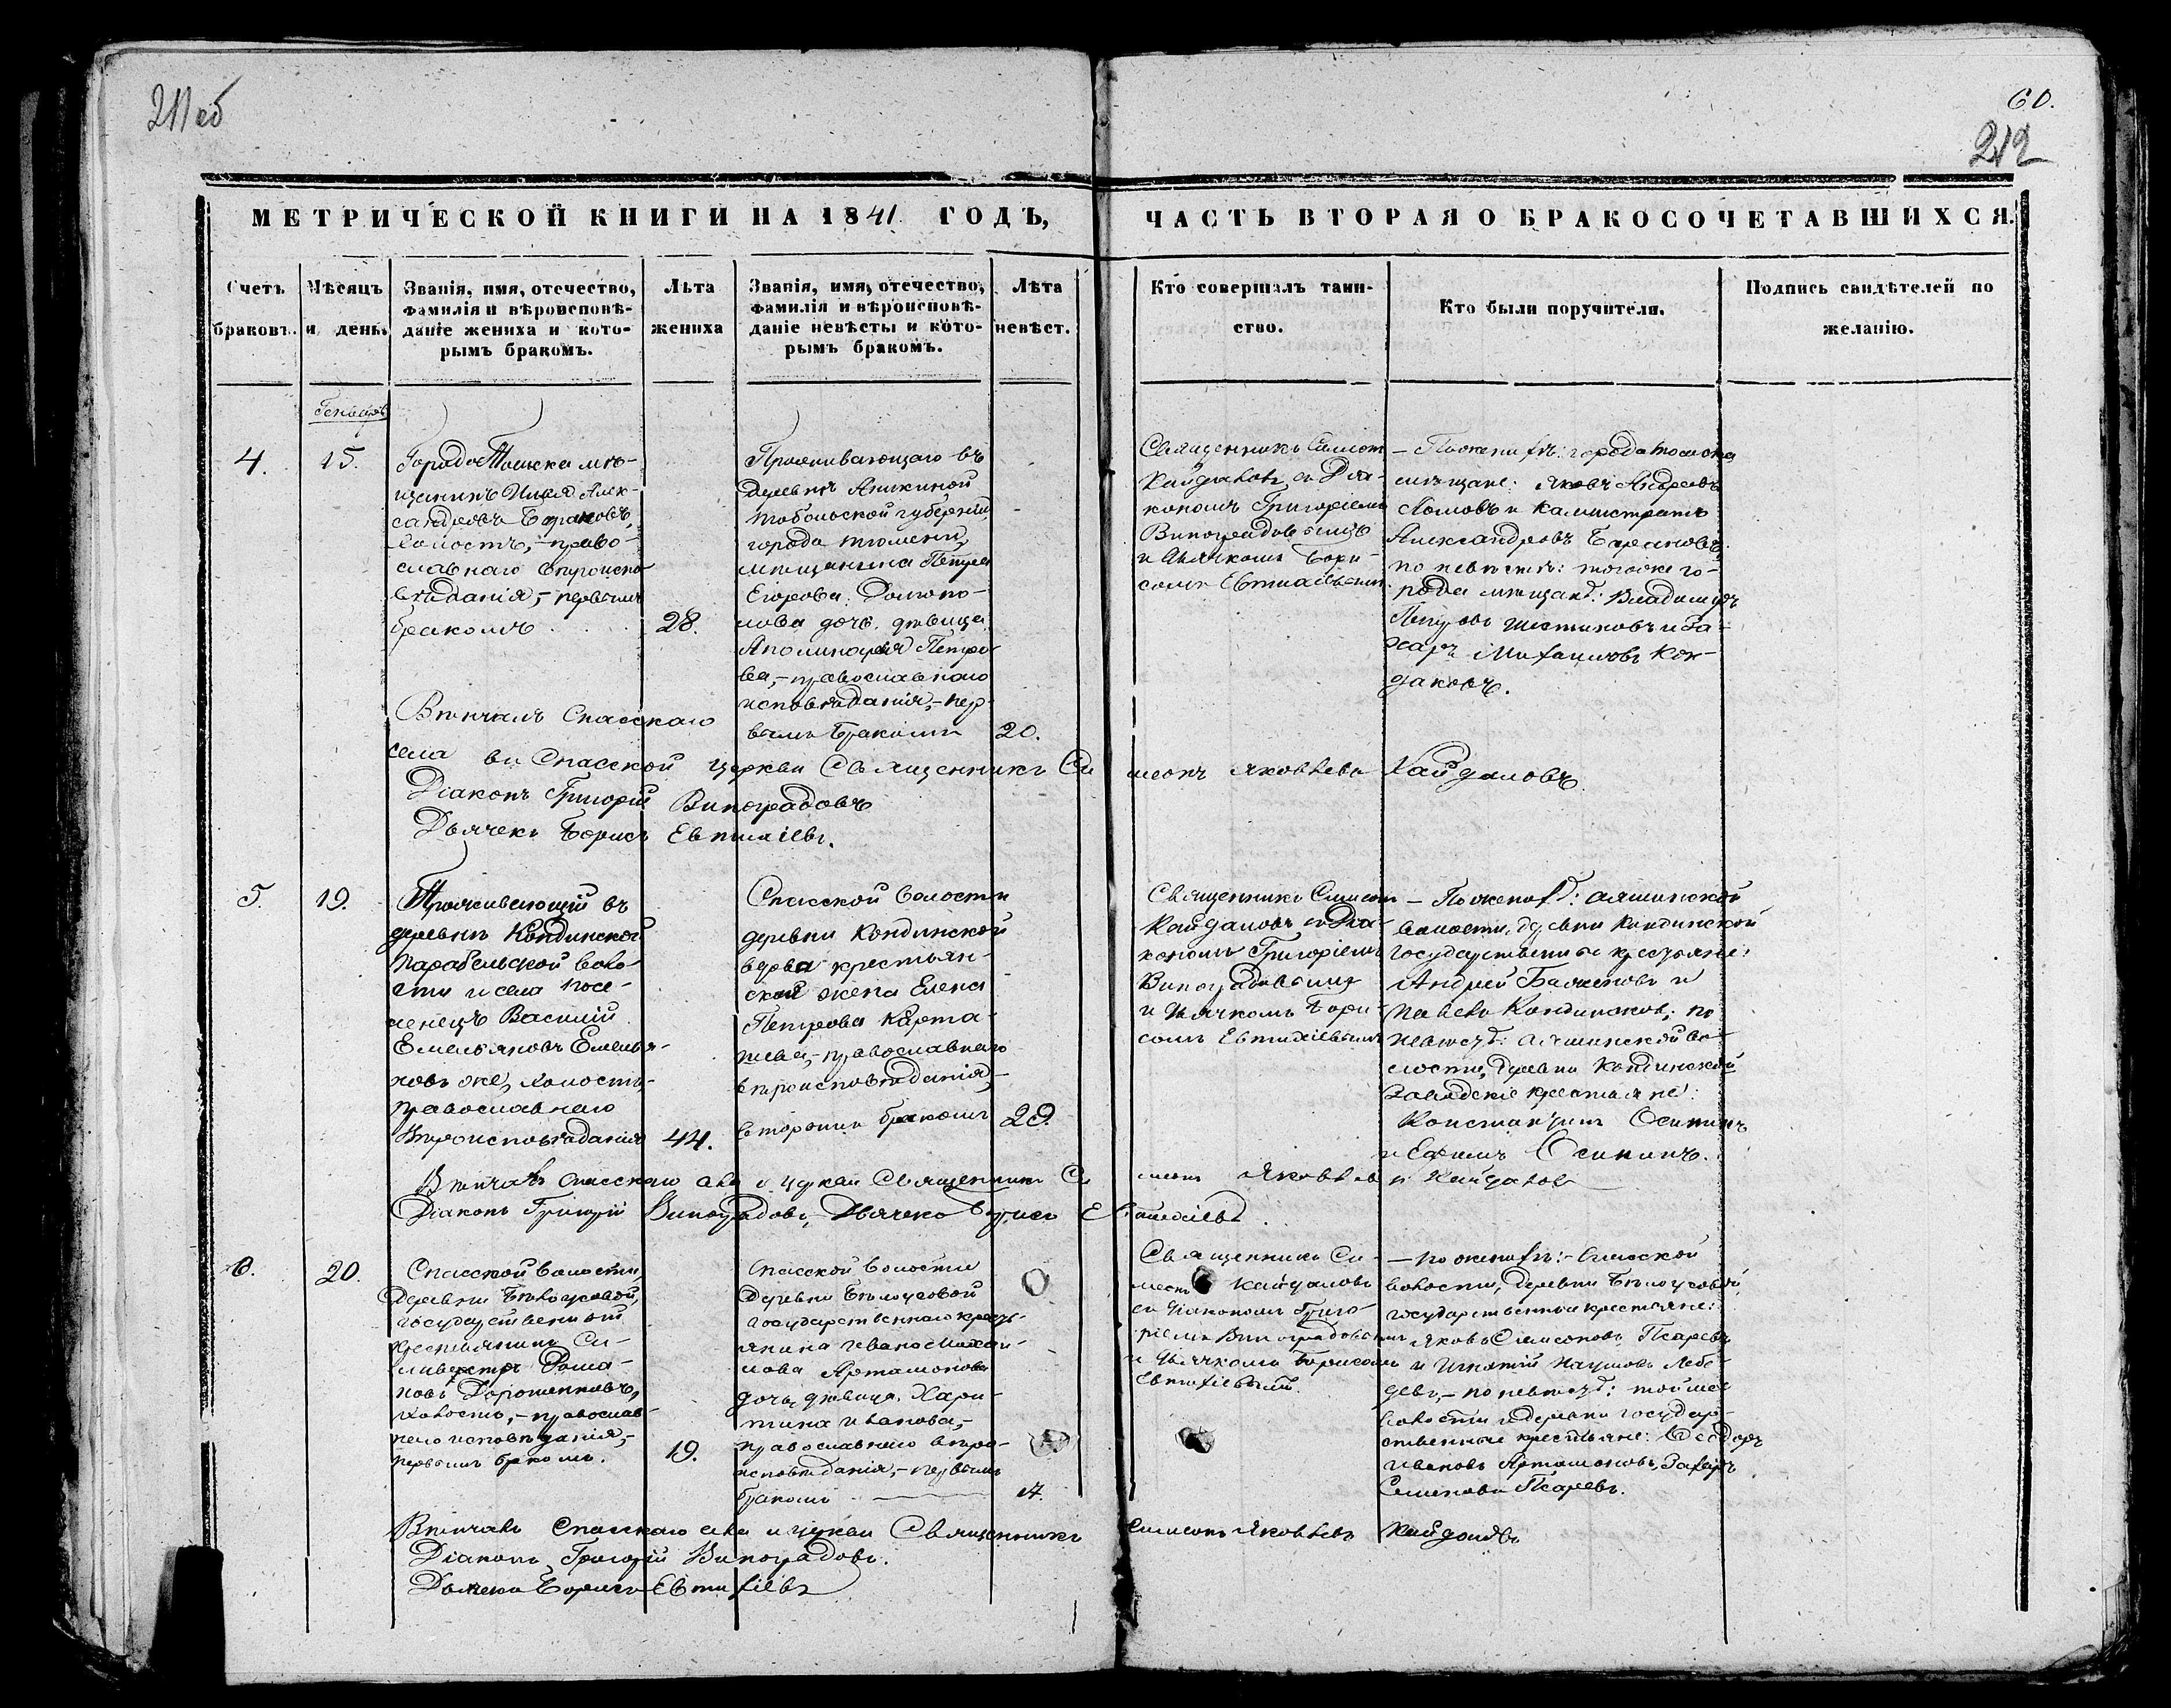 211 об
60.
212
МЕТРИЧЕСКОЙ КНИГИ НА 1841. ГОДЪ,
ЧАСТЬ ВТОРАЯ О БРАКОСОЧЕТАВШИХСЯ.
Счетъ браковъ.
Мѣсяцъ и день.
Званія, имя, отечество,
фамилія и вѣроисповѣ-
даніе жениха и кото-
рымъ бракомъ.
Лѣта
жениха
Званія, имя, отечество,
фамилія и вѣроисповѣ-
даніе невѣсты и кото-
рымъ бракомъ.
Лѣта
невѣст.
Кто совершалъ таин-
ство.
Кто были поручители.
Подпись свидѣтелей по
желанію.
Генварь
4.
15.
Города Томска мѣ-
щанинъ Алек-
сандровъ Барановъ,
холостъ,- право-
славнаго вѣроиспо-
вѣданія,- первымъ
бракомъ
28.
Проживающаго въ
деревнѣ Аникиной
Тобольской губерніи,
города Тюмени,
мѣщанина Петра
Егорова
дочь дѣвица
Петро-
ва,- православнаго
исповѣданія,- пер-
вымъ бракомъ
20.
Священникъ Симеон
Кайдаловъ съ Діа-
кономъ Григоріемъ
Виноградовымъ
и Дьячкомъ Бори-
сомъ Евтихіевымъ.
- По женихѣ: города Томска
мѣщане: Яковъ Андреевъ
и Калистратъ
Александровъ Барановъ,
по невѣстѣ: тогоже го-
рода мѣщане: Владимиръ
Петровъ Шестаковъ и За-
харъ Михаиловъ Кон-
даковъ.
Вѣнчалъ Спасскаго
села въ Спасской церкви Священникъ Си меонъ Яковлевъ Кайдаловъ.
Діаконъ Григорій Виноградовъ
Дьячекъ Борисъ Евтихіевъ.
5.
19.
Проживающій въ
деревнѣ Кондинской
Парабельской воло-
сти и села посе-
ленецъ Василій
Емельяновъ Емелья-
новъ же, холостъ,-
православнаго
вѣроисповѣданія
44.
Спасской волости
деревни Кондинской
вдова крестьян-
ская жена Елена
Петрова Карта-
шева,- православнаго
вѣроисповѣданія,-
вторымъ бракомъ
29.
Священникъ Симеонъ
Кайдаловъ съ Діа-
кономъ Григоріемъ
Виноградовымъ
и Дьячкомъ Бори-
сомъ Евтихіевымъ
- По женихѣ:
волости, деревни Кондинской
государственные крестьяне:
Андрей и
Павелъ Кондинской; по
невѣстѣ: во-
лости, деревни Кондинской
Заводскіе крестьяне:
Константинъ Осипинъ
и Ефимъ Осипинъ.
Вѣнчалъ Спасскаго села и церкви Священникъ Си меонъ Яковлевъ Кайдаловъ
Діаконъ Григорій Виноградовъ, Дьячекъ Борисъ Евтихіевъ.
6.
20.
Спасской волости,
деревни Бѣлоусовой,
государственный
крестьянинъ Си-
ливерстръ Рома-
новъ Дорошенковъ,
холостъ,- православ-
наго исповѣданія,-
первымъ бракомъ.
19.
Спасской волости
деревни Бѣлоусовой
государственнаго кресть-
янина Ивана Михаи-
лова Артамонова
дочь дѣвица, Хари-
тина Иванова,-
православнаго вѣро-
исповѣданія,- первымъ
бракомъ
17.
Священникъ Си-
меонъ Кайдаловъ
съ Діакономъ Григо-
ріемъ Виноградовымъ
и Дьячкомъ Борисомъ
Евтихіевымъ.
- По женихѣ:- Спасской
волости, деревни Бѣлоусовой,
государственные крестьяне:
Яковъ Симеоновъ Псаревъ
и Игнатій Наумовъ Лебе-
девъ,- по невѣстѣ: тойже
волости и деревни государ-
ственные крестьяне: Ѳеодоръ
Ивановъ Артамоновъ, Захаръ
Семеновъ Псаревъ.
Вѣнчалъ Спасскаго села и церкви Священникъ Симеонъ Яковлевъ Кайдаловъ
Діаконъ Григорій Виноградовъ.
Дьячекъ Борисъ Евтихіевъ